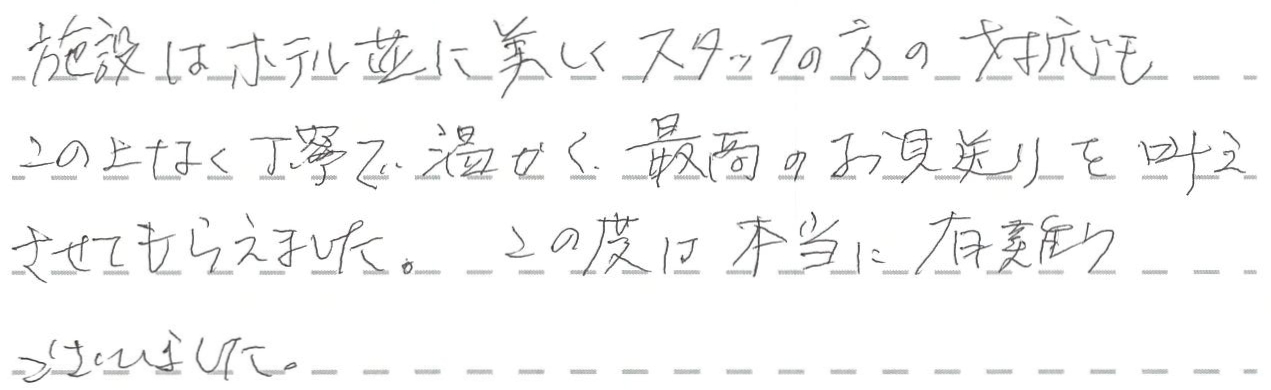 施設はホテル並に美しくスタッフの方の対応も
この上なく丁寧で温かく、最高のお見送りを叶え
させてもらえました。 この度は本当に有難う
ございました。